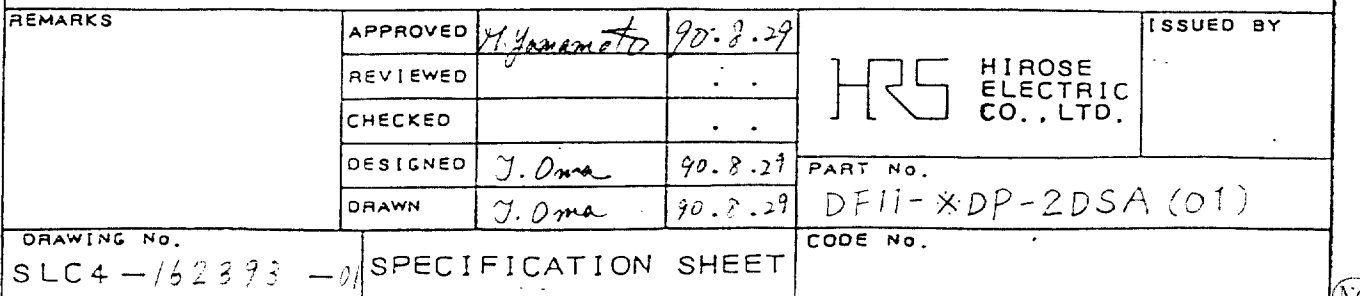 REMARKS
APPROVED M. Yamamoto 90.8.29
REVIEWED . .
CHECKED . .
DESIGNED T. Oma 90.8.29
DRAWN T. Oma 90.8.29
HRS HIROSE
ELECTRIC
CO., LTD.
ISSUED BY
PART No.
DF11-※DP-2DSA (01)
DRAWING No.
SLC4-162393-01
SPECIFICATION SHEET
CODE No.